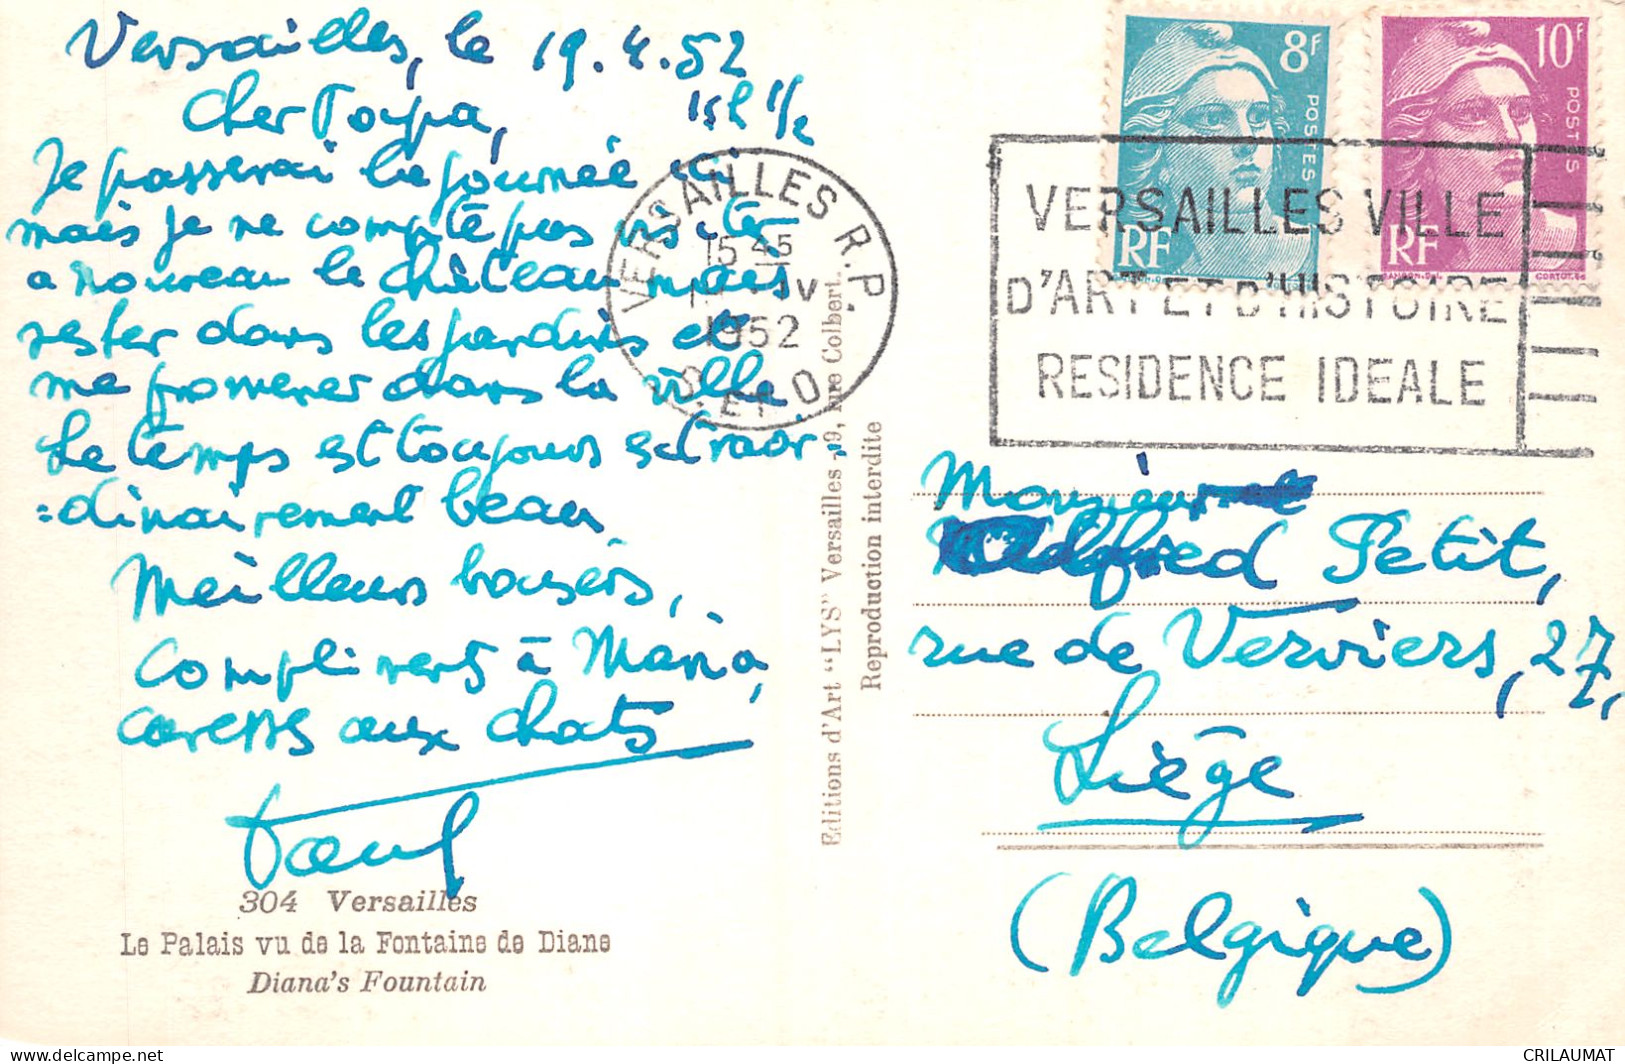 Versailles, le 19.4.52
Cher Poupa, 15h 1/2
Je passerai la journée ici
mais je ne compte pas visiter
a nouveau le château mais
rester dans les jardins et
me promener dans la ville.
Le temps est toujours extraor-
=dinairement beau.
Meilleurs baisers,
compliments à Maria,
caresses aux chats
Paul
304 Versailles
Le Palais vu de la Fontaine de Diane
Diana's Fountain
Editions d'Art "LYS" Versailles - 9, Rue Colbert.
Reproduction interdite
VERSAILLES R.P.
15 45
IV
1952
S. ET O
8F
POSTES
RF
10F
POSTES
RF
CORTOT.SC
VERSAILLES VILLE
D'ART ET D'HISTOIRE
RESIDENCE IDEALE
Monsieur
Alfred Petit,
rue de Verviers, 27,
Liège
(Belgique)
CRILAUMAT